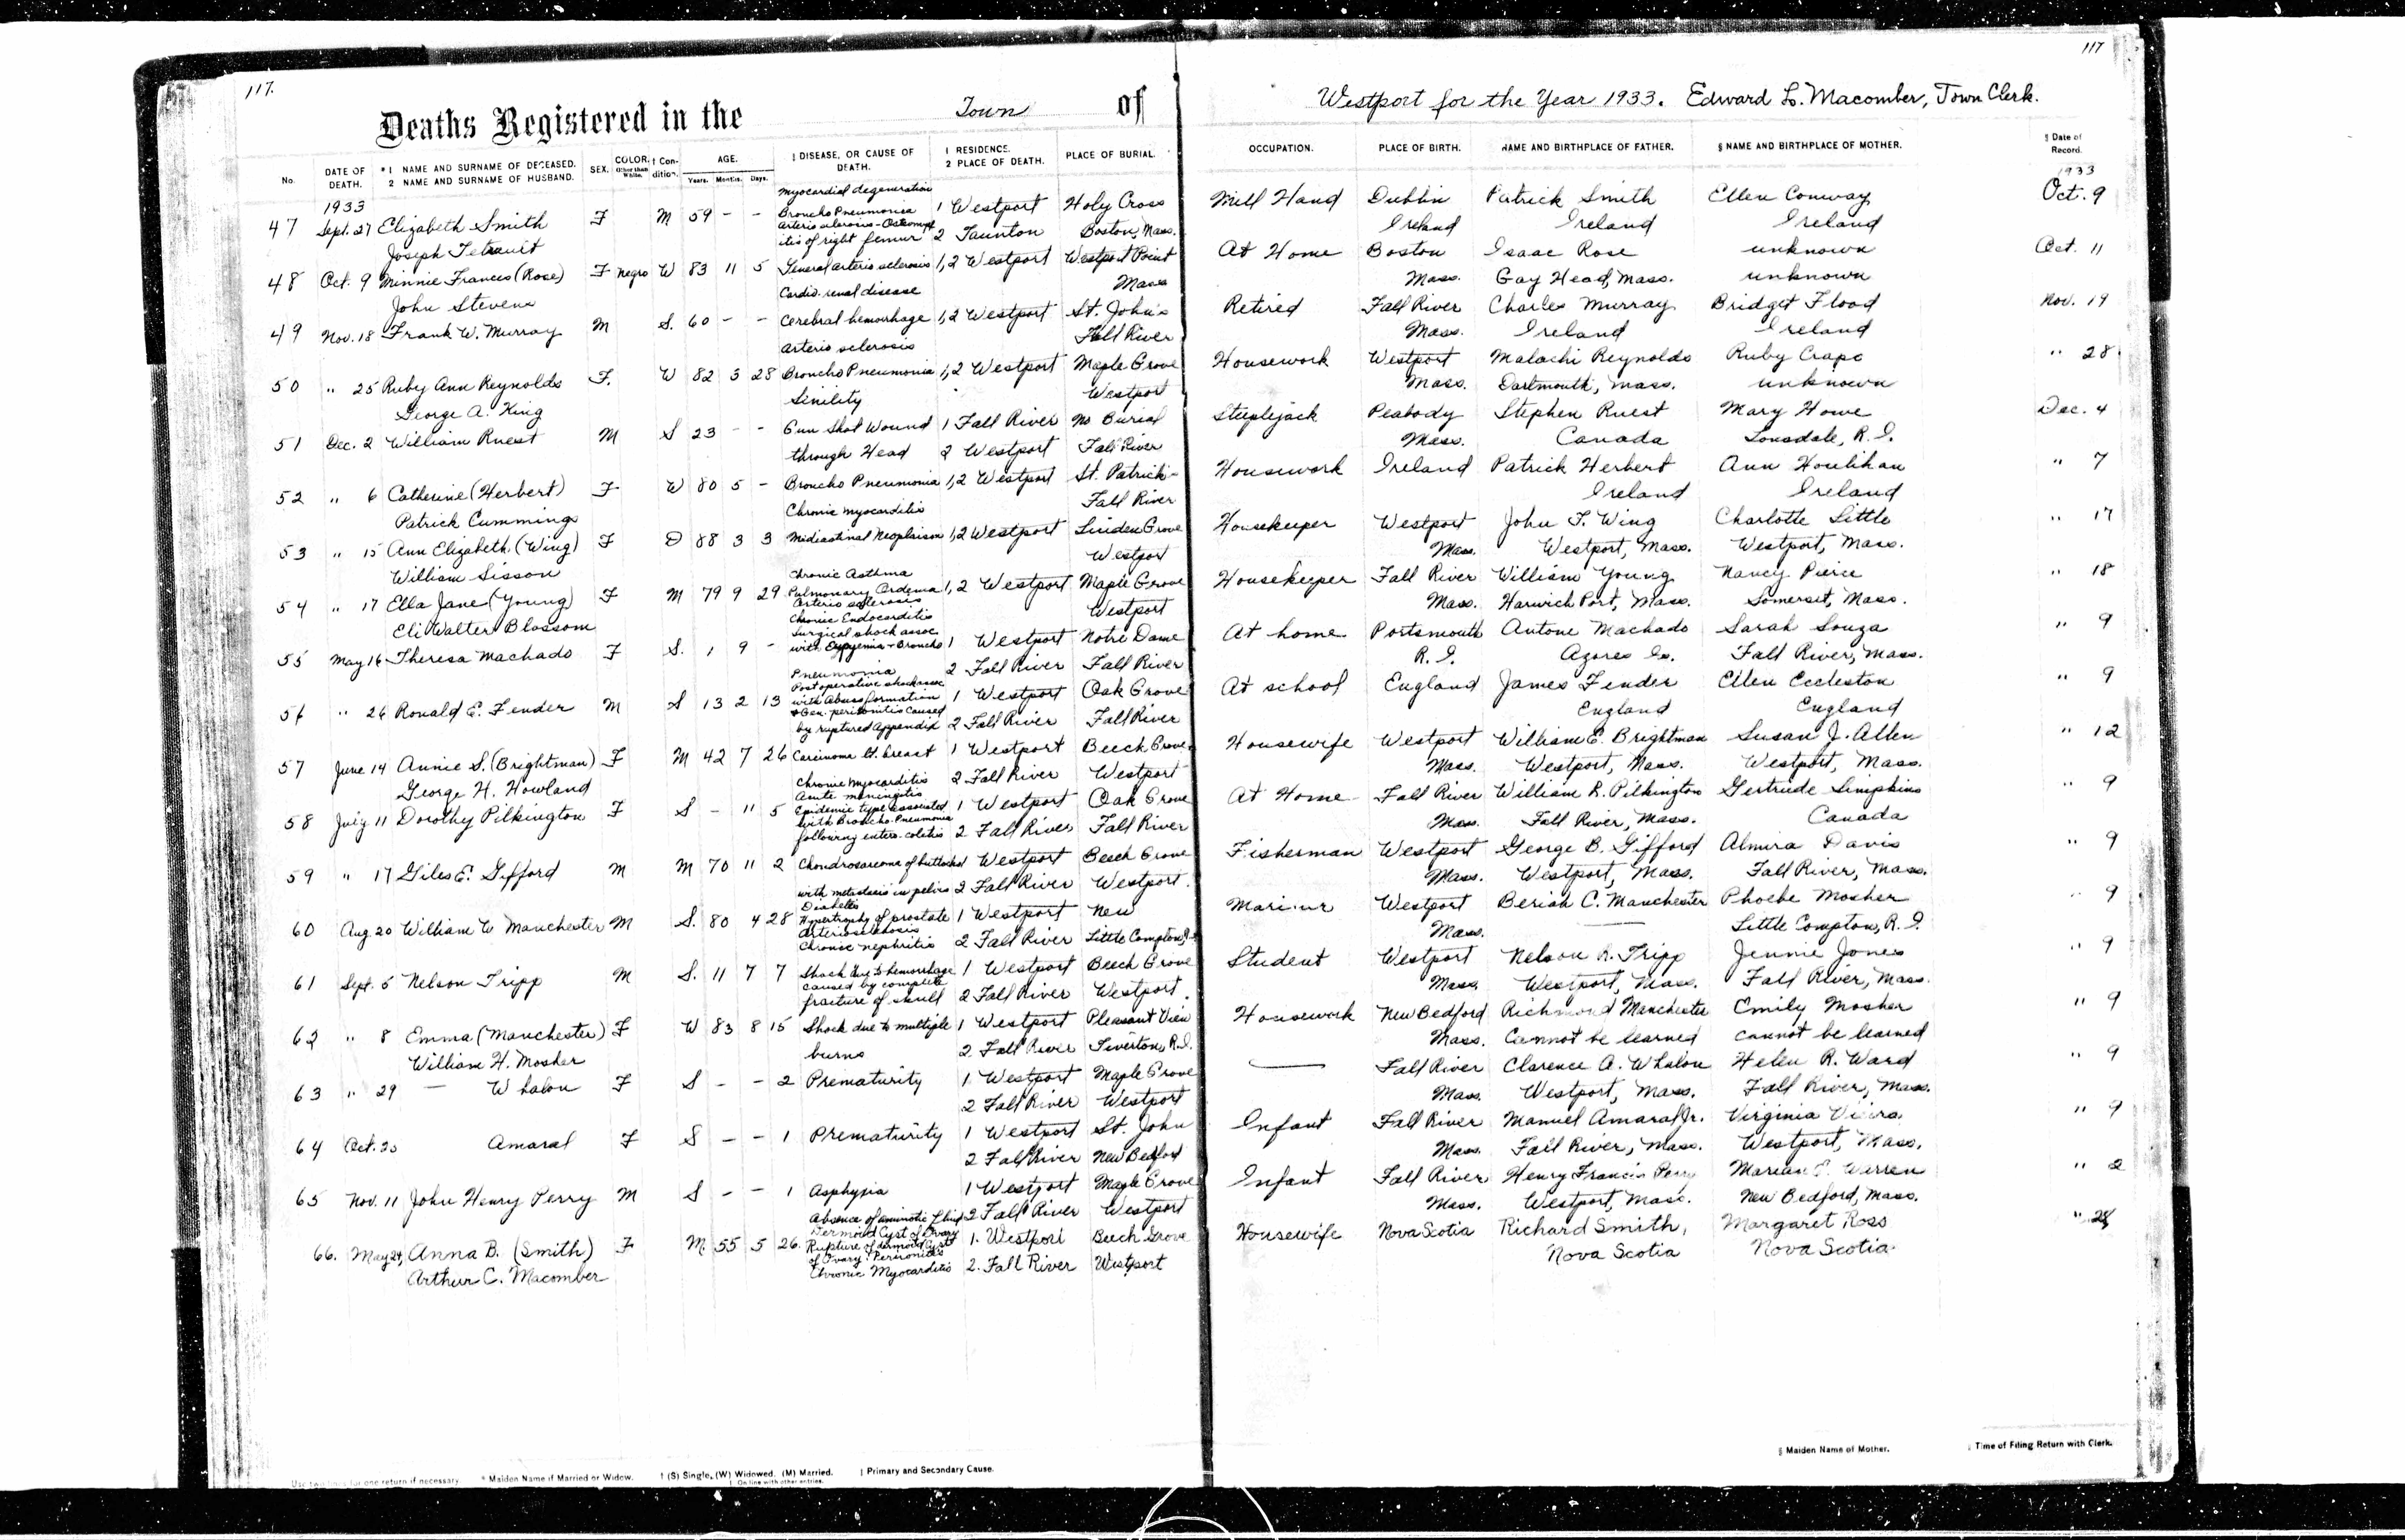 117.
117
Deaths Registered in the Town of Westport for the Year 1933. Edward L. Macomber, Town Clerk.
No. DATE OF DEATH. * 1 NAME AND SURNAME OF DECEASED. 2 NAME AND SURNAME OF HUSBAND. SEX. COLOR. Other than White. † Condition. AGE. Years. Months. Days. ‡ DISEASE, OR CAUSE OF DEATH. 1 RESIDENCE. 2 PLACE OF DEATH. PLACE OF BURIAL. OCCUPATION. PLACE OF BIRTH. NAME AND BIRTHPLACE OF FATHER. § NAME AND BIRTHPLACE OF MOTHER. Date of Record.
1933 myocardial degeneration 1933
47 Sept. 27 Elizabeth Smith F M 59 - - Broncho Pneumonia 1 Westport Holy Cross Mill Hand Dublin Patrick Smith Ellen Conway Oct. 9
Joseph Tetrault Arterio sclerosis - itis of right femur 2 Taunton Boston, Mass. Ireland Ireland Ireland
48 Oct. 9 Minnie Frances (Rose) F negro W 83 11 5 General arterio sclerosis 1,2 Westport Westport Point At Home Boston Isaac Rose unknown Oct. 11
John Stevens Cardio-renal disease Mass Mass. Gay Head, Mass. unknown
49 Nov. 18 Frank W. Murray M S. 60 - - Cerebral hemorrhage 1,2 Westport St. John's Retired Fall River Charles Murray Bridget Flood Nov. 19
Arterio sclerosis Fall River Mass. Ireland Ireland
50 " 25 Ruby Ann Reynolds F. W 82 3 28 Broncho Pneumonia 1,2 Westport Maple Grove Housework Westport Malachi Reynolds Ruby Crapo " 28.
George A. King Sinility Westport Mass. Dartmouth, Mass. unknown
51 Dec. 2 William Ruest M S 23 - - Gun Shot Wound 1 Fall River No Burial Steeplejack Peabody Stephen Ruest Mary Howe Dec. 4
through Head 2 Westport Fall River Mass. Canada Lonsdale, R.I.
52 " 6 Catherine (Herbert) F W 80 5 - Broncho Pneumonia 1,2 Westport St. Patrick- Housework Ireland Patrick Herbert Ann Houlihan " 7
Patrick Cummings Chronic myocarditis Fall River Ireland Ireland
53 " 15 Ann Elizabeth (Wing) F D 88 3 3 Midiastinal Neoplaism 1,2 Westport Linden Grove Housekeeper Westport John T. Wing Charlotte Little " 17
William Sisson Westport Mass. Westport, Mass. Westport, Mass.
Chronic Asthma
54 " 17 Ella Jane (Young) F M 79 9 29 Pulmonary Oedema 1,2 Westport Maple Grove Housekeeper Fall River William Young Nancy Pierce " 18
Eli Walter Blossom Arterio sclerosis Chronic Endocarditis Westport Mass. Harwich Port, Mass. Somerset, Mass.
Surgical shock assoc
55 May 16 Theresa Machado F S. 1 9 - with Empyemia + Broncho 1 Westport Notre Dame At home Portsmouth Antone Machado Sarah Souza " 9
Pneumonia 2 Fall River Fall River R.I. Azores Is. Fall River, Mass.
Post operative shock assoc
56 " 26 Ronald E. Fender M S 13 2 13 with Abcess formation 1 Westport Oak Grove At school England James Fender Ellen Eccleston " 9
+ Gen. peritonitis caused by ruptured Appendix 2 Fall River Fall River England England
57 June 14 Annie S. (Brightman) F M 42 7 26 Carcinoma lt. breast 1 Westport Beech Grove Housewife Westport William E. Brightman Susan J. Allen " 12
George H. Howland Chronic Myocarditis 2 Fall River Westport Mass. Westport, Mass. Westport, Mass.
Acute meningitis
58 July 11 Dorothy Pilkington F S - 11 5 Epidemic type associated 1 Westport Oak Grove At Home Fall River William R. Pilkington Gertrude Simpkins " 9
with Broncho-Pneumonia following entero-colitis 2 Fall River Fall River Mass. Fall River, Mass. Canada
59 " 17 Giles E. Gifford M M 70 11 2 Chondrosarcoma of buttocks 1 Westport Beech Grove Fisherman Westport George B. Gifford Almira Davis " 9
with metastasis in pelvis 2 Fall River Westport. Mass. Westport, Mass. Fall River, Mass.
Diabetes
60 Aug. 20 William W Manchester M S. 80 4 28 Hypertrophy of prostate 1 Westport New Mariner Westport Beriah C. Manchester Phoebe Mosher " 9
Arteriosclerosis Chronic nephritis 2 Fall River Little Compton, Mass. — Little Compton, R.I.
61 Sept. 5 Nelson Tripp M S. 11 7 7 Shock due to hemorrhage 1 Westport Beech Grove Student Westport Nelson R. Tripp Jennie Jones " 9
caused by complete fracture of skull 2 Fall River Westport. Mass. Westport, Mass. Fall River, Mass.
62 " 8 Emma (Manchester) F W 83 8 15 Shock due to multiple 1 Westport Pleasant View Housework New Bedford Richmond Manchester Emily Mosher " 9
William H. Mosher burns 2 Fall River Tiverton, R.I. Mass. Cannot be learned cannot be learned
63 " 29 — Whalon F S - - 2 Prematurity 1 Westport Maple Grove — Fall River Clarence A. Whalon Helen R. Ward " 9
2 Fall River Westport Mass. Westport, Mass. Fall River, Mass.
64 Oct. 20 Amaral F S - - 1 Prematurity 1 Westport St. John Infant Fall River Manuel Amaral Jr. Virginia " 9
2 Fall River New Bedford Mass. Fall River, Mass. Westport, Mass.
65 Nov. 11 John Henry Perry M S - - 1 Asphyxia 1 Westport Maple Grove Infant Fall River Henry Francis Perry Marian E. Warren " 2
Absence of amniotic fluid 2 Fall River Westport Mass. Westport, Mass. New Bedford, Mass.
Dermoid Cyst of Ovary
66. May 24, Anna B. (Smith) F M. 55 5 26. Rupture of Dermoid Cyst 1. Westport Beech Grove Housewife Nova Scotia Richard Smith, Margaret Ross " 28
Arthur C. Macomber of Ovary Peritonitis Chronic Myocarditis 2. Fall River Westport Nova Scotia Nova Scotia
§ Maiden Name of Mother. Time of Filing Return with Clerk.
Use two lines for one return if necessary. * Maiden Name if Married or Widow. † (S) Single, (W) Widowed. (M) Married. ‡ Primary and Secondary Cause.
On line with other entries.